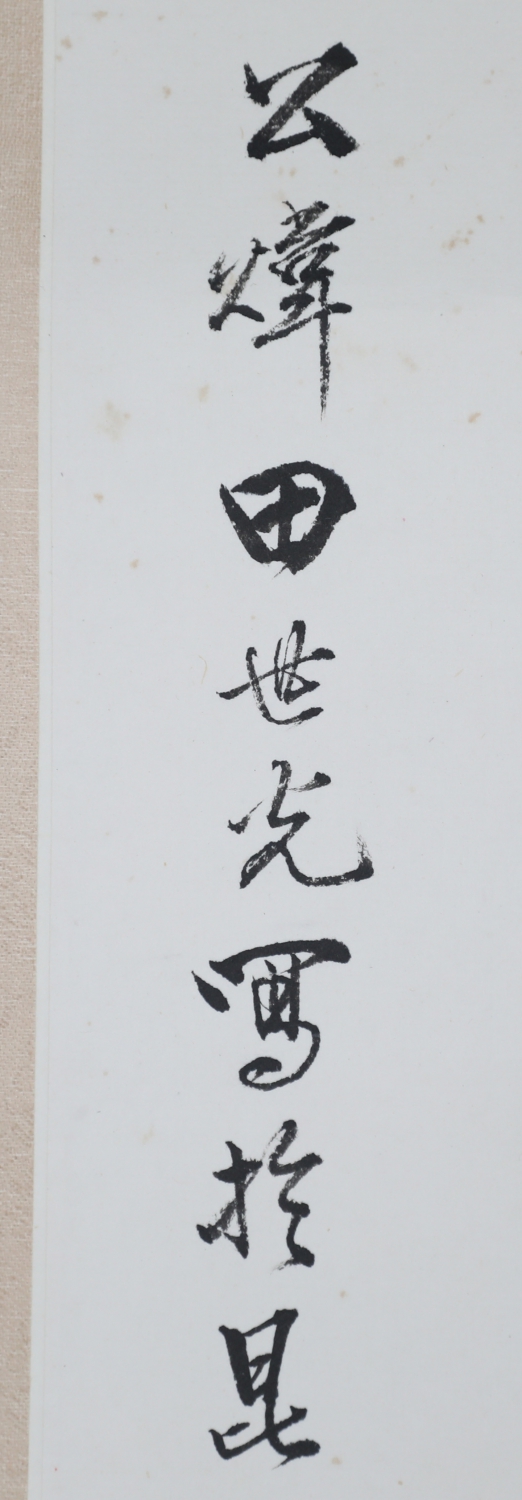 公煒田世光寫於昆